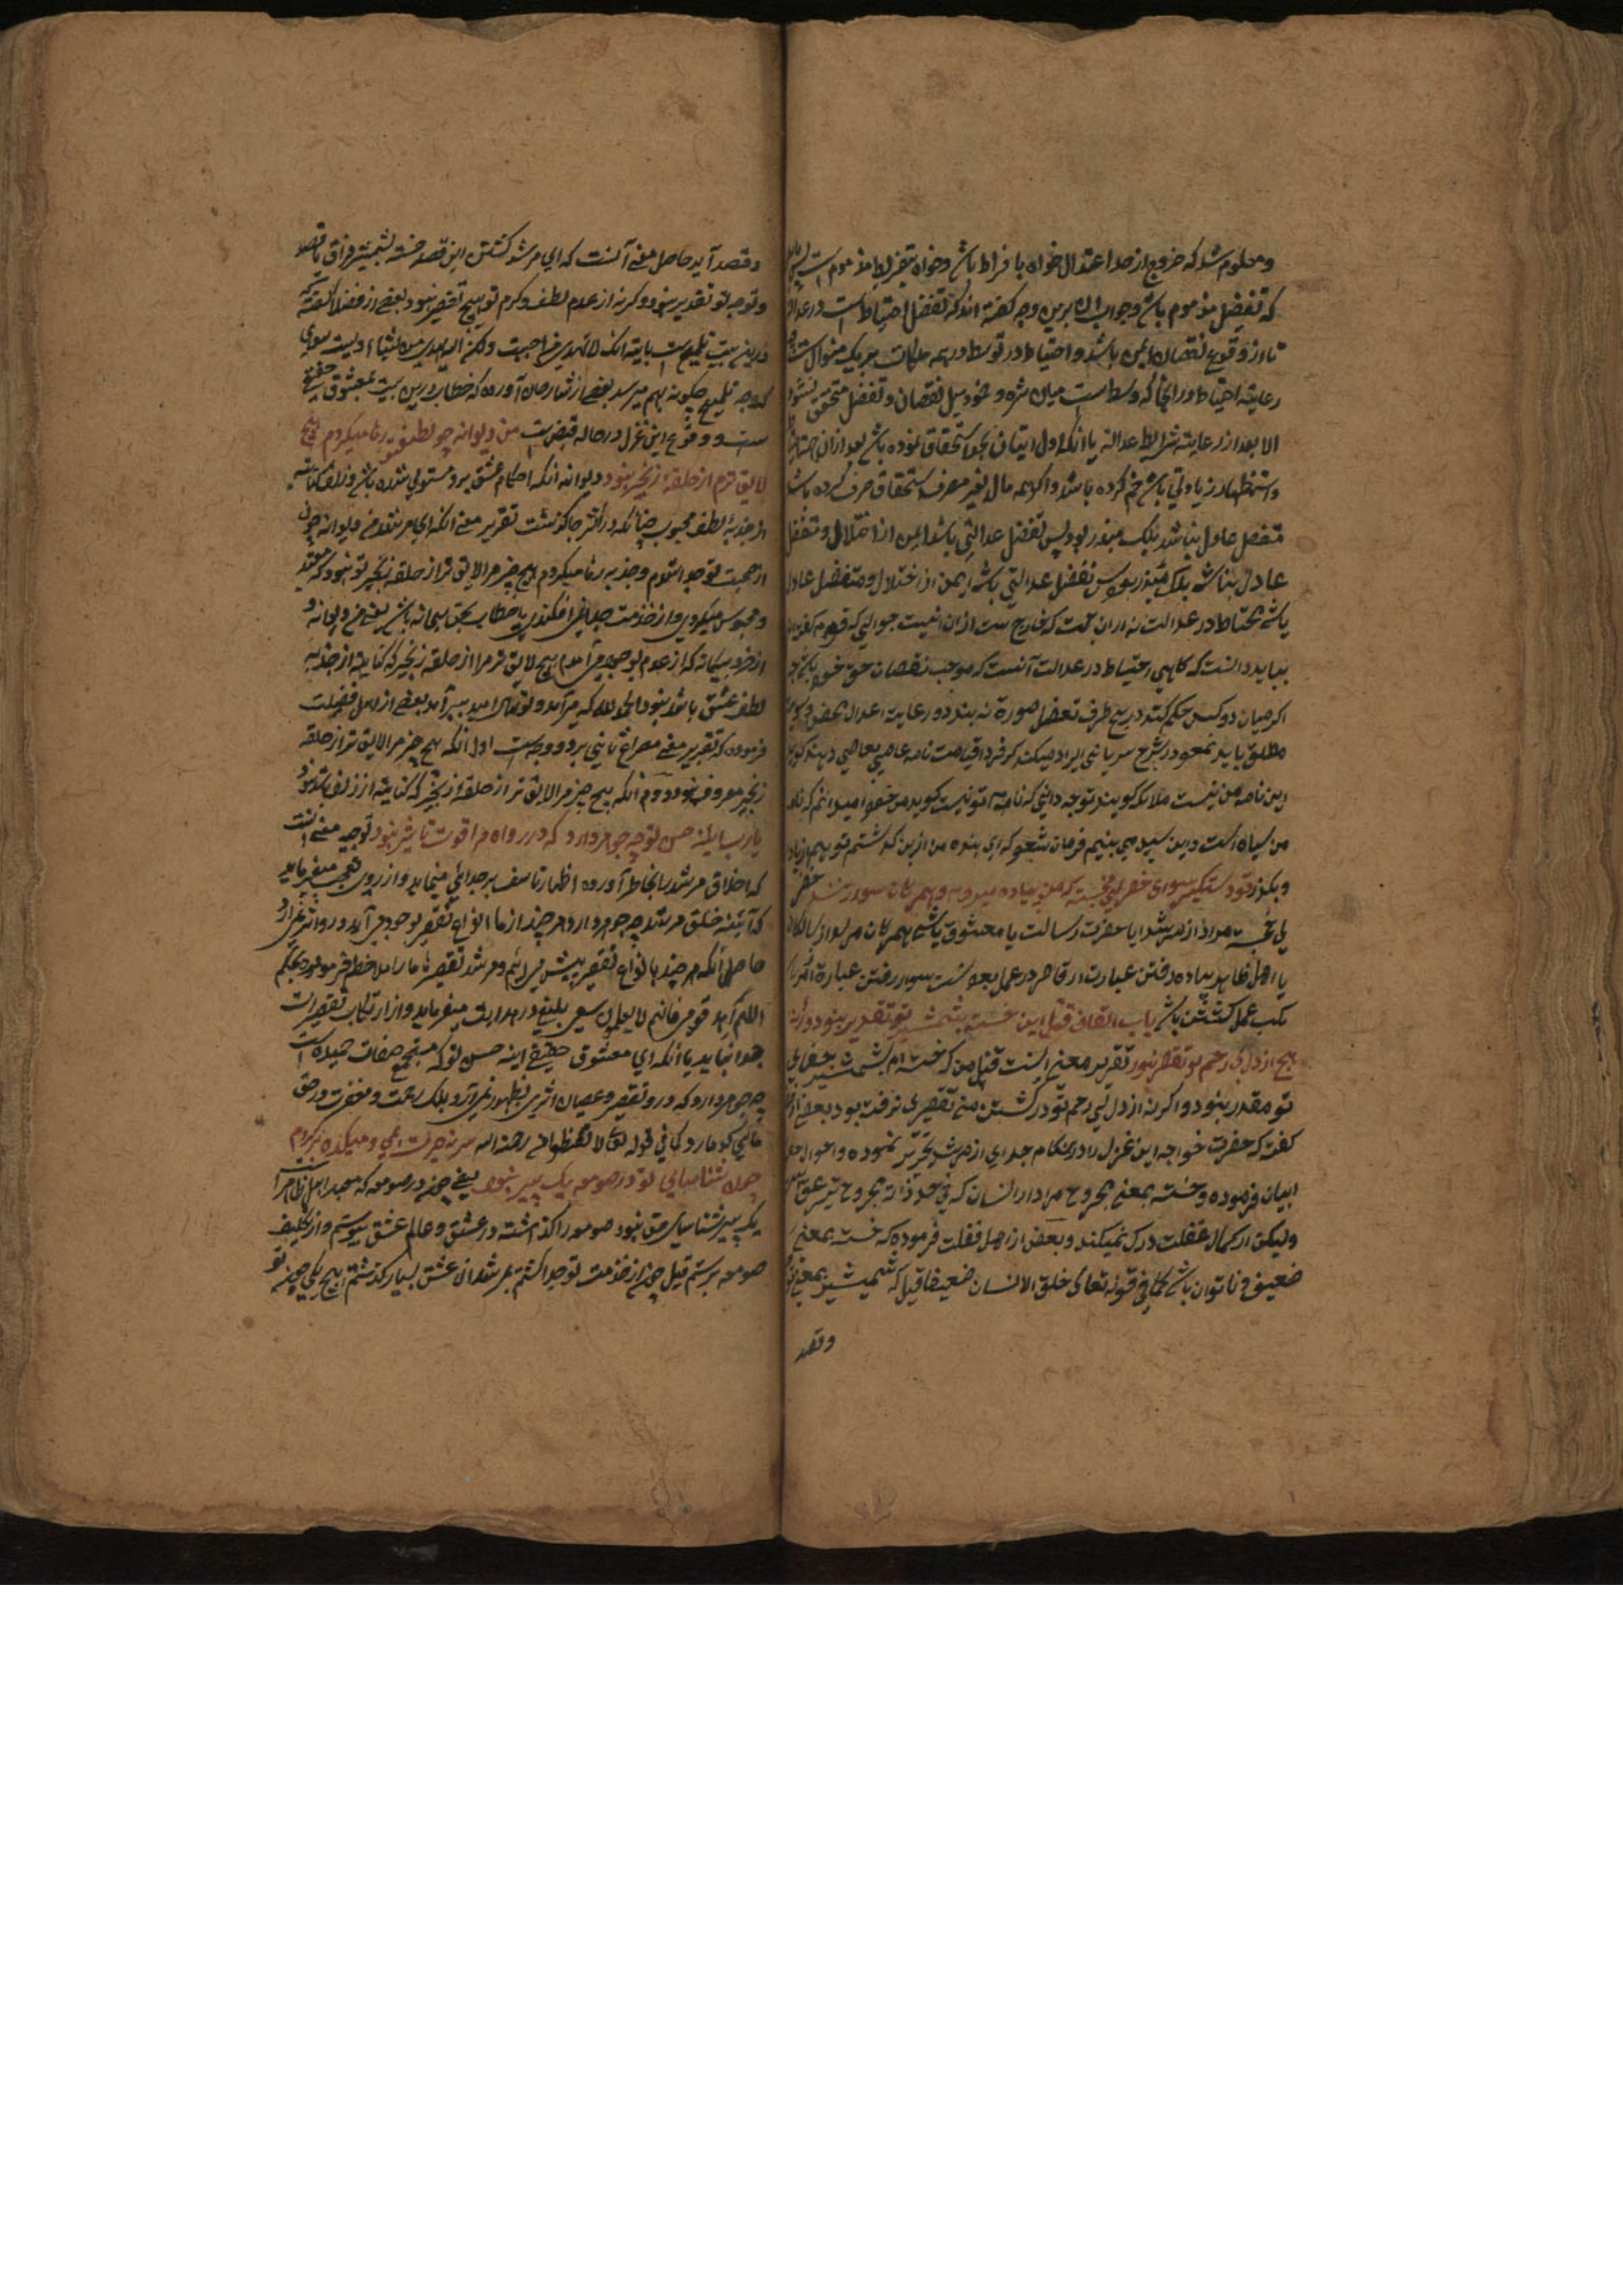 و معلوم شد که خروج از حد اعتدال خواه بافراط باشد و خواه بتفریط مذموم است
که تفضل مذموم باشد و جواب ان برین وجه گفته اند که تفضل احتیاط است در عدالت
تا از وقوع نقصان ایمن باشد و احتیاط در توسط در همه ملکات بریک منوال
رعایت احتیاط در انجا که وسط است میان شره و خمود میل نقصان و تفضل متحقق نشود
الا بعد از رعایت شرایط عدالت یا انکه اول اتیان بجهة استحقاق نموده باشد بعد از ان
واستظهار زیادتی با ان ضم کرده باشد و اگر همه مال بغیر مصرف استحقاق صرف کرده باشد
متفضل عادل نباشد بلک مبذر بود پس تفضل عدالتی باشد ایمن از اختلال و متفضل
عادل نباشد بلک مبذر بود پس تفضل عدالتی باشد ایمن از اختلال و متفضل عادل
باشد محتاط در عدالت نه از ان جهت که خارج ست از ان
بباید دانست که گاهی احتیاط در عدالت آنست که موجب نقصان حق خود
اگر میان دو کس حکم کند در هیچ طرف تفضل صورة نه بندد و رعایت اعدال محض
مطلق باید نمود در شرح سر پاشی ایراد میکند که فردا قیامت نامه عاصی بعاصی دهند گوید
این نامه من نیست ملائک گویند توجه دانی که نامه تو نیست گوید من خود میدانم که نامه
من سیاه است و این سپید می بینم فرمان شود که ای بنده من از این گذشتم تو هم
و بگذر تو دستگیر شو ای خضر پی خجسته که من پیاده میروم و همرهان سوارانند خضر
پی خجسته مراد از مرشد یا حضرت رسالت یا معشوق باشد همرهان مراد از سالکان
یا اهل ظاهر پیاده رفتن عبارت از قاصر در عمل بودنست سوار رفتن عبارة
بکسب عمل گشتن باشد یا باب القاف قتل این خسته بشمشیر تو تقدیر نبود ورنه
هیچ از دل بی رحم تو تقصیر نبود تقریر معنی اینست قتل من که خسته ام بشمشیر جفای
تو مقدر نبود و اگر نه از دل بی رحم تو در کشتن من تقصیری نرفته بود بعضی
گفته که حضرت خواجه این غزل را در هنگام جدای از مرشد تحریر نموده و احوال
ابیان فرموده و خسته بمعنی مجروح مراد از انسان که فی حد ذاته مجروح تیر عشق
ولیکن از کمال غفلت درک نمیکند و بعض از اهل فضلت فرموده که خسته بمعنی
ضعیف و ناتوان باشد کما فی قوله تعالی خلق الانسان ضعیفا قیل که شمشیر بمعنی
وقصد
وقصد آید حاصل معنی آنست که ای مرشد کشتن این قصد خسته بشمشیر فراق
و توجه تو تقدیر نبود وگرنه از عدم لطف و کرم تو هیچ تقصیر نبود بعضی از فضلا گفته که
درین بیت تلمیح است بایت انک لا تهدی من احببت ولکن الله یهدی من یشاء
که وجه تلمیح چگونه بهم میرسد بعضی از شارحان آورده که خطاب درین بیت بمعشوق حقیقی
ست و وقوع این غزل در حاله قبض است من دیوانه چو زلف تو رها میکردم هیچ
لایق ترم از حلقه زنجیر نبود دیوانه انکه احکام عشق برو مستولی شده باشد و زلف کنایت
از جذبه لطف محبوب چنانکه در اکثر جا گذشت تقریر معنی آنکه ای مرشد من دیوانه چون
از صحبت تو جدا شدم و جذبه رها میکردم هیچ چیز مرا لایق تر از حلقه زنجیر تو نبود که مقید
و محبوس میکردی و از خدمت جدا نمی افکندی یا خطاب بحق سبحانه باشد یعنی من دیوانه و
از خرد بیگانه که از عدم بوجود می آمدم هیچ لایق تر مرا از حلقه زنجیر که کنایت از جذبه
لطف عشق باشد نبود الحمد لله که میسر آمد و تمنا امید بسر آمد بعضی از اهل فضیلت
فرموده که تقریر معنی مصراع ثانی بر دو وجه است اول آنکه هیچ چیز مرا لایق تر از حلقه
زنجیر معروف نبود دوم آنکه هیچ چیز مرا لایق تر از حلقه زنجیر که کنایت از زلف باشد نبود
یا رب این آینه حسن تو چه جوهر دارد که درو آه مرا قوت تاثیر نبود توجیه معنی آنست
که اخلاق مرشد را بخاطر آورده اظهار تاسف بر جدائی مینماید و از روی تعجب میفرماید
که آئینه خلق مرشد چه جوهر دارد هر چند از ما انواع تقصیر بوجود می آید درو اثر نمی کرد
حاصل آنکه هر چند بانواع تقصیر پیش می آئیم و مرشد تقصیرها ما را بحکم
اللهم اهد قومی فانهم لا یعلمون سعی بلیغ در هدایت میفرماید و از ارتکاب تقصیرات
جدا نماید یا آنکه ای معشوق حقیقی آینه حسن تو که مستجمع صفات حمیده است
چه جوهر دارد که درو تقصیر و عصیان اثری بظهور نمی آرد بلک رحمت و مغفرت در حق
عاصی گوما رو کما فی قوله تعالی لا تقنطوا من رحمة الله سر ز حیرت بدر میکده ها برکردم
چون شناسای تو در صومعه یک پیر نبود یعنی چون در صومعه که معبد اهل ظاهر است
یک پیر شناسای حق نبود صومعه را گذاشته در عشق و عالم عشق پیوستم و از تکلیف
صومعه برستم قیل چون از خدمت تو جدا گشتم بمرشدان عشق بسیار گذشتم هیچ یکی چون تو